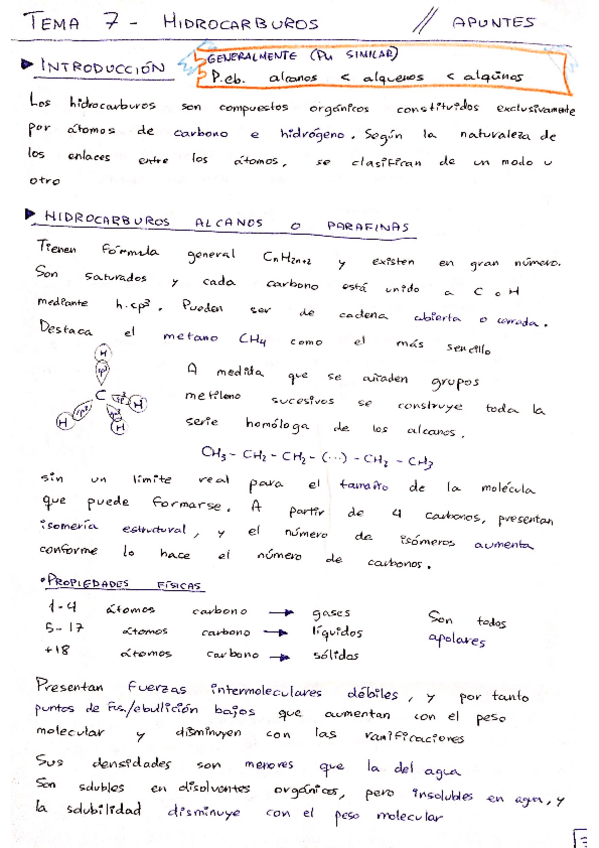 TEMA 7 - HIDROCARBUROS // APUNTES
INTRODUCCIÓN
GENERALMENTE (Pm SIMILAR)
P.eb. alcanos < alquenos < alquinos
Los hidrocarburos son compuestos orgánicos constituidos exclusivamente
por átomos de carbono e hidrógeno. Según la naturaleza de
los enlaces entre los átomos, se clasifican de un modo u
otro
HIDROCARBUROS ALCANOS O PARAFINAS
Tienen fórmula general CnH2n+2 y existen en gran número.
Son saturados y cada carbono está unido a C o H
mediante h.sp³. Pueden ser de cadena abierta o cerrada.
Destaca el metano CH4 como el más sencillo
H
sp³
C
sp³ H
H sp³ sp³
H
A medida que se añaden grupos
metileno sucesivos se construye toda la
serie homóloga de los alcanos.
CH3 - CH2 - CH2 - (...) - CH2 - CH3
sin un límite real para el tamaño de la molécula
que puede formarse. A partir de 4 carbonos, presentan
isomería estructural, y el número de isómeros aumenta
conforme lo hace el número de carbonos.
• PROPIEDADES FÍSICAS
1-4 átomos carbono → gases
5-17 átomos carbono → líquidos
+18 átomos carbono → sólidos
Son todos
apolares
Presentan fuerzas intermoleculares débiles, y por tanto
puntos de fus./ebullición bajos que aumentan con el peso
molecular y disminuyen con las ramificaciones
Sus densidades son menores que la del agua
Son solubles en disolventes orgánicos, pero insolubles en agua, y
la solubilidad disminuye con el peso molecular